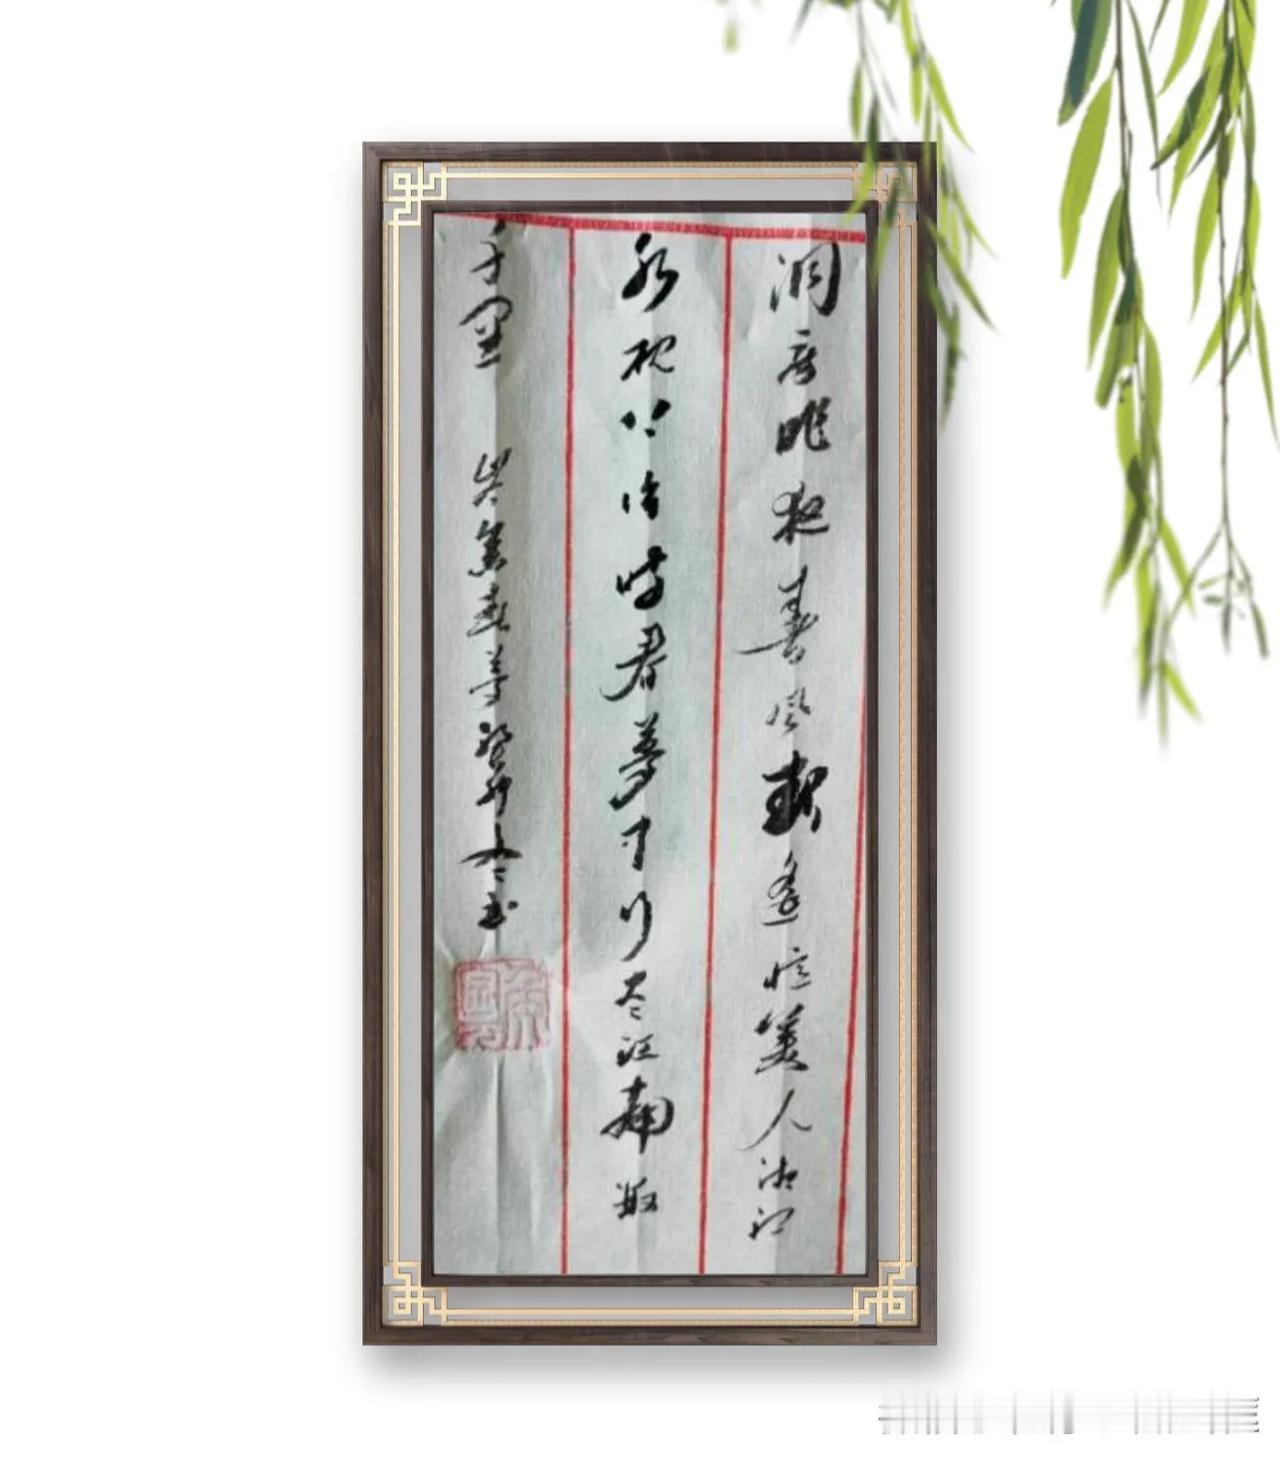 洞房昨夜春风起遥忆美人湘江
水枕上片时春梦中行尽江南数
千里 岑参春梦 癸卯冬书